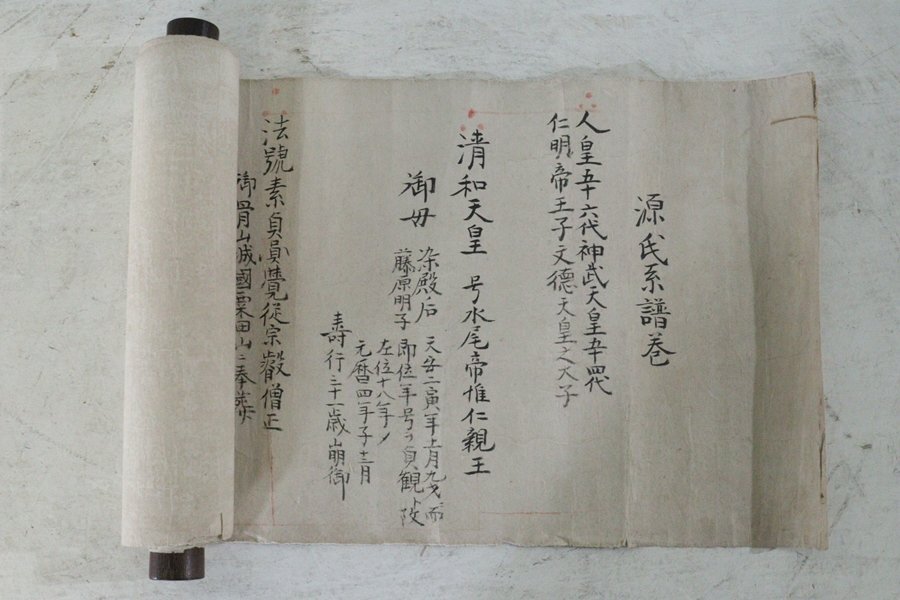 源氏系譜巻
人皇五十六代神武天皇五十四代
仁明帝王子文德天皇之太子
清和天皇 号水尾帝惟仁親王
御母 染殿后
藤原明子
天安二寅年 月九才ニ而
即位年号ヲ貞観ト改
在位十八年〆
元暦四年子十二月
壽行三十一歳崩御
法號素貞 覺從宗叡僧正
御骨山城國粟田山ニ奉葬